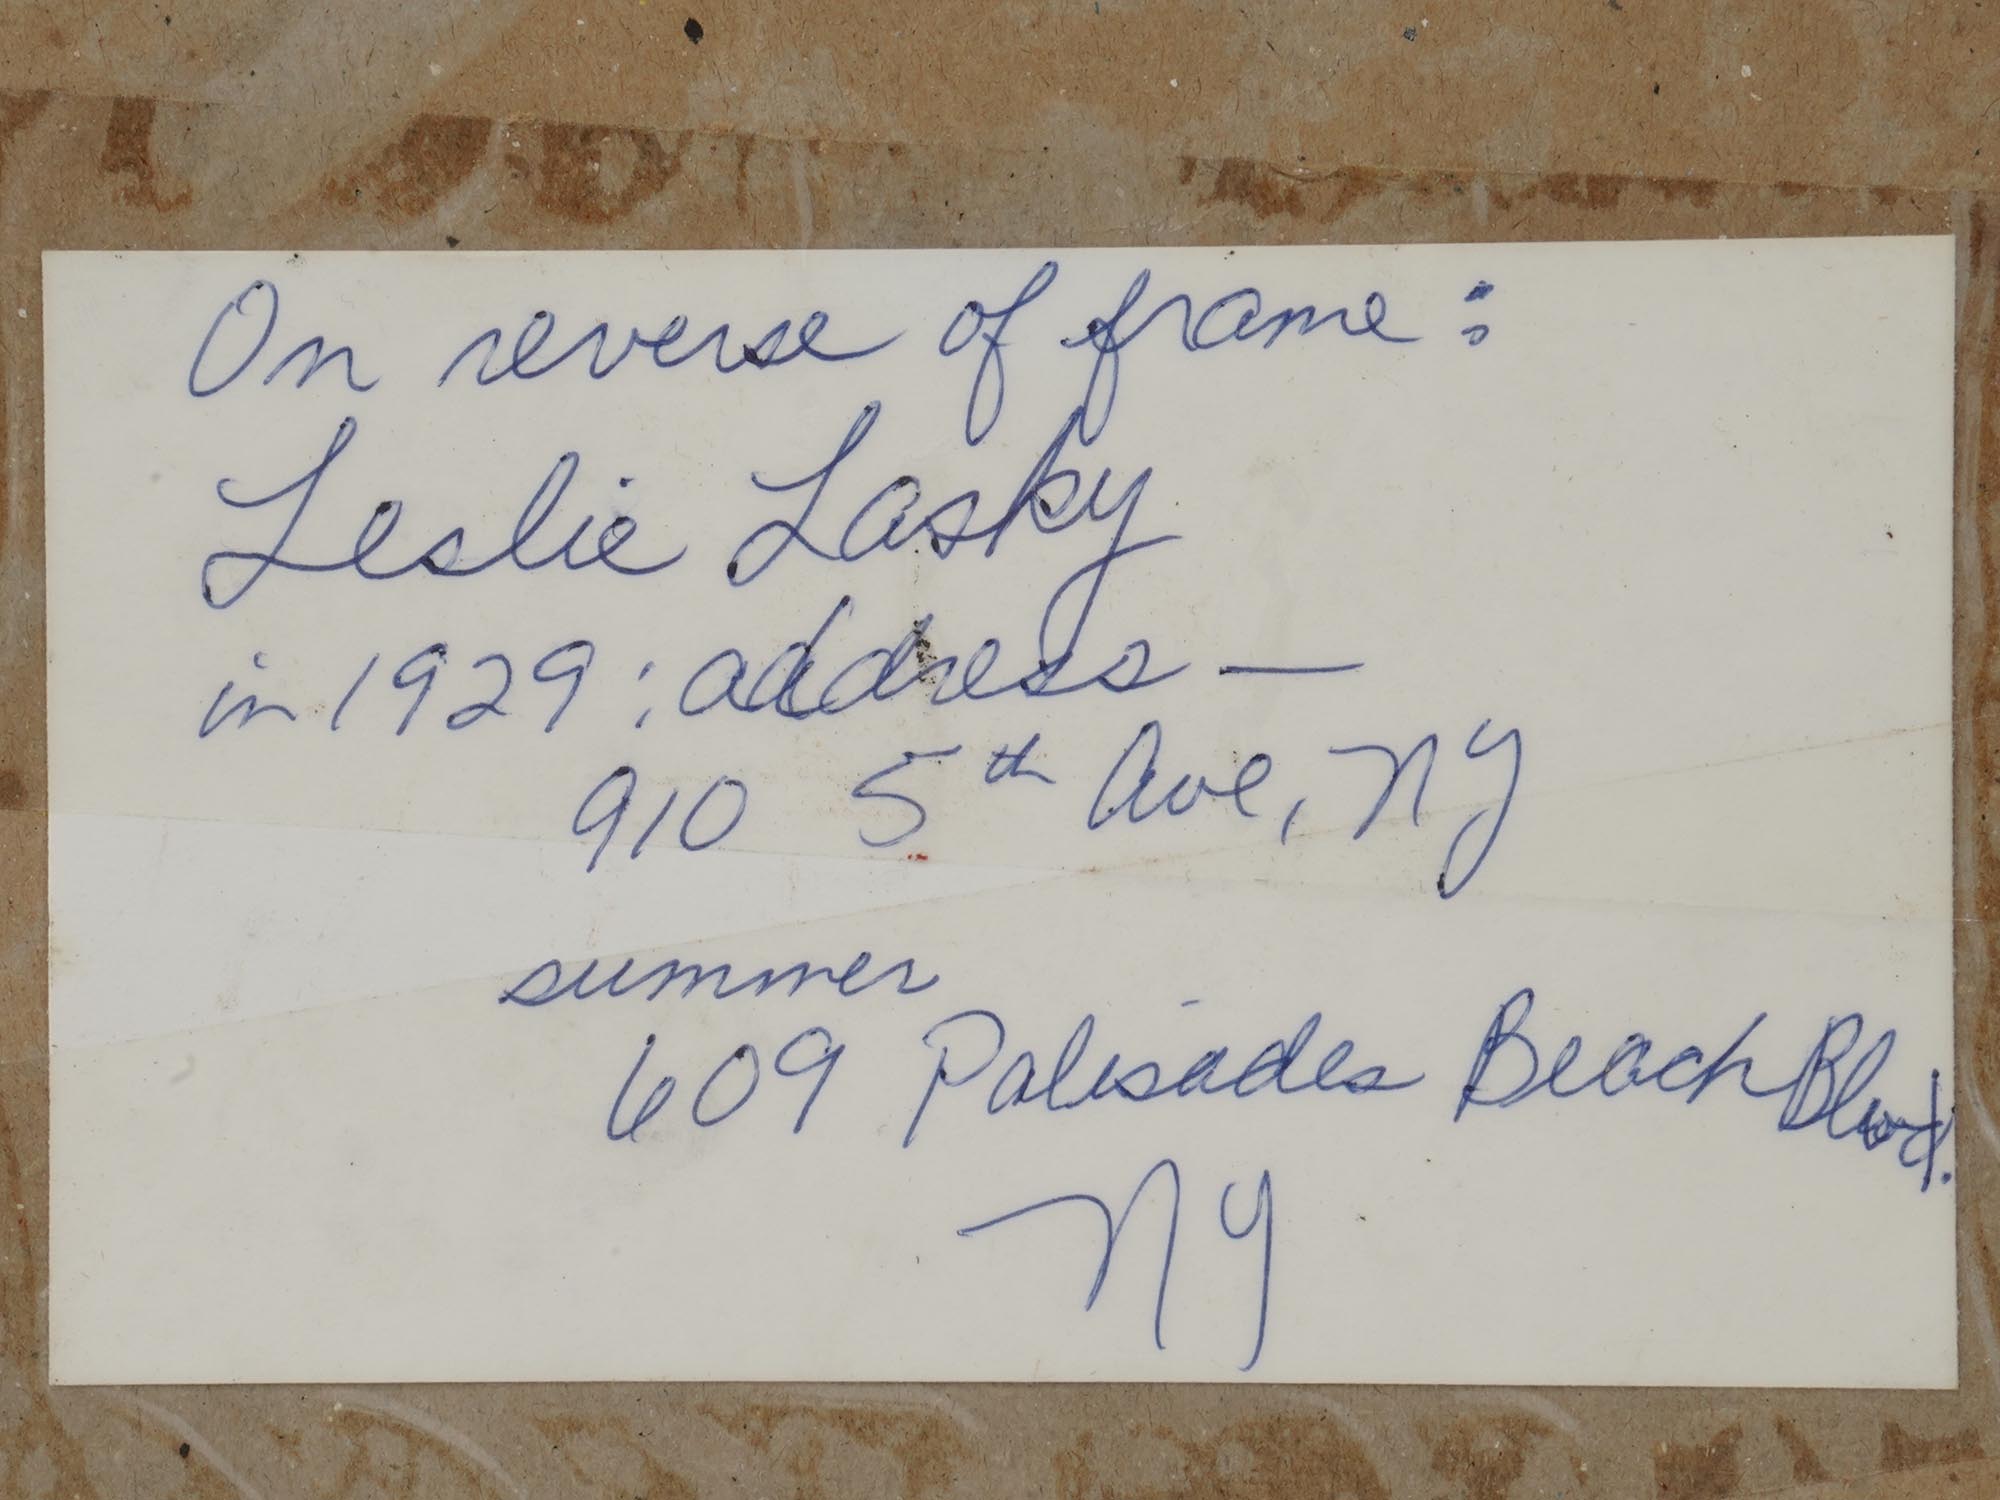 On reverse of frame:
Leslie Lasky
in 1929; address —
910 5th Ave, NY
summer
609 Palisades Beach Blvd.
NY